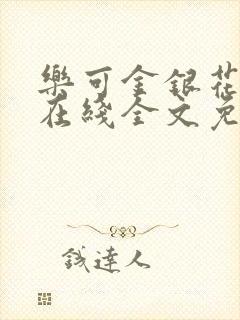 樂可金銀花
在綫全文免
錢達人